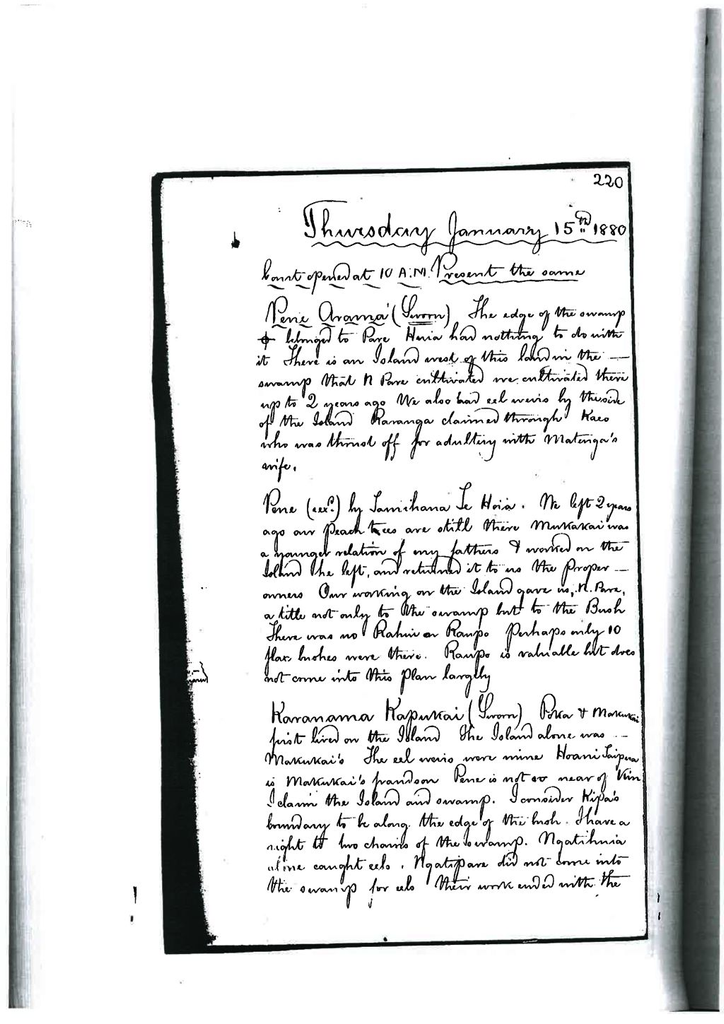 220
Thursday January 15th 1880
Court opened at 10 A.M. Present the same
Pene Arama (Sworn) The edge of the swamp
belonged to Pare Huia had nothing to do with
it There is an Island west of this land in the —
swamp that N Pare cultivated we cultivated there
up to 2 years ago We also had eel weirs by the side
of the Island Karanga claimed through Kaeo
who was thrust off for adultery with Matenga's
wife.
Pene (xxd.) by Tamihana Te Hoia. We left 2 years
ago our peach trees are still there Mukakai was
a younger relation of my fathers & worked on the
Island he left, and returned it to us the proper —
owners Our working on the Island gave us, N. Pare,
a title not only to the swamp but to the Bush
There was no Rahui or Raupo Perhaps only 10
flax bushes were there. Raupo is valuable but does
not come into this plan largely
Karanama Kapukai (Sworn) Poka & Makukai
first lived on the Island The Island alone was —
Makukai's The eel weirs were mine Hoani Taipua
is Makukai's grandson Pene is not so near of kin
I claim the Island and swamp. I consider Kipa's
boundary to be along the edge of the bush. I have a
right to two chains of the swamp. Ngatihuia
alone caught eels. Ngatipare did not come into
the swamp for eels their work ended with the